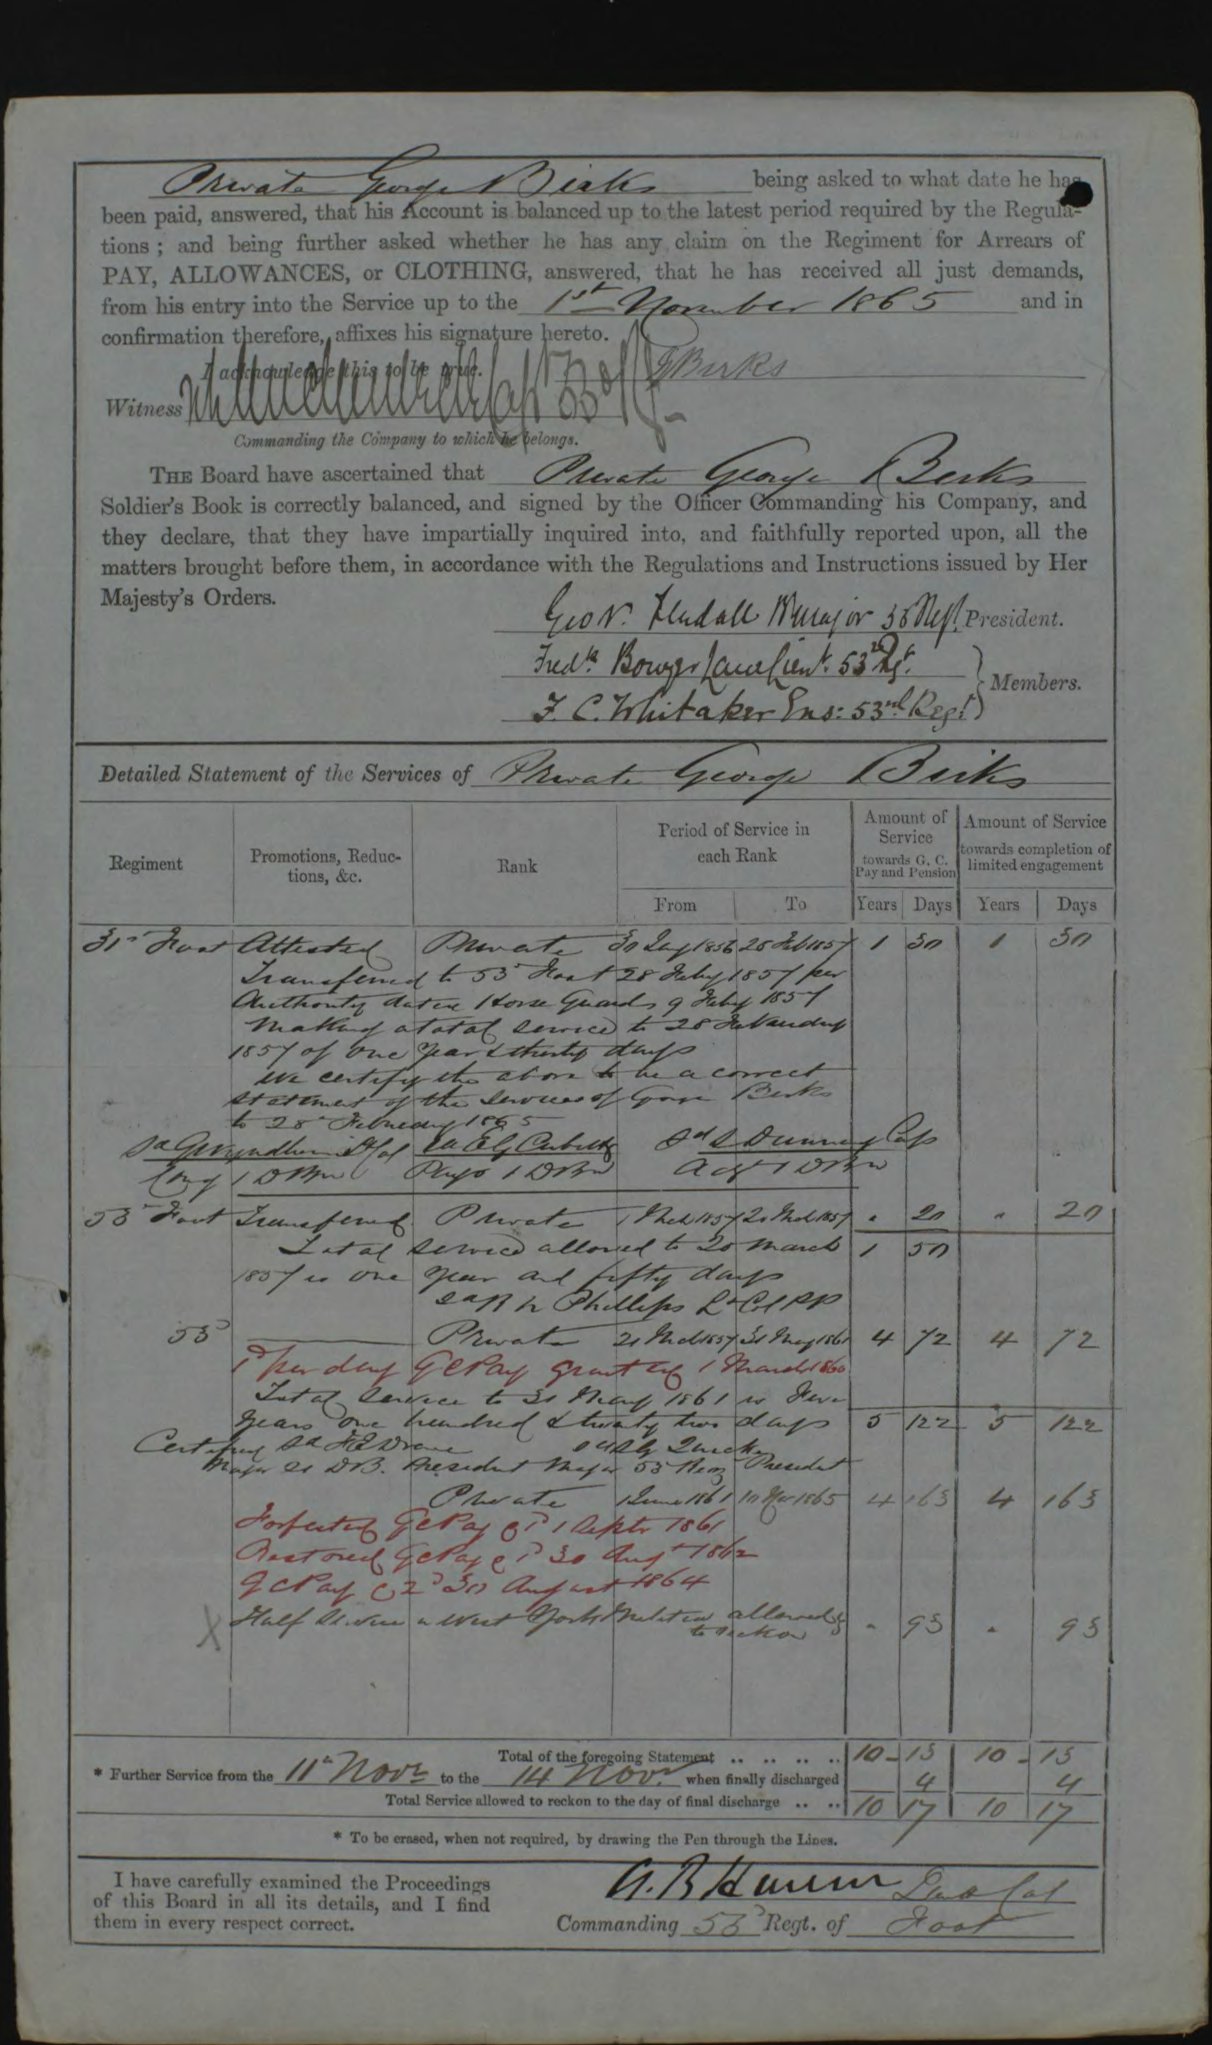 Private George Birks being asked to what date he has
been paid, answered, that his Account is balanced up to the latest period required by the Regula-
tions ; and being further asked whether he has any claim on the Regiment for Arrears of
PAY, ALLOWANCES, or CLOTHING, answered, that he has received all just demands,
from his entry into the Service up to the 1st November 1865 and in
confirmation therefore, affixes his signature hereto.
I acknowledge this to be true. G Birks
Witness Capt 53d Rgt
Commanding the Company to which he belongs.
THE Board have ascertained that Private George Birks
Soldier's Book is correctly balanced, and signed by the Officer Commanding his Company, and
they declare, that they have impartially inquired into, and faithfully reported upon, all the
matters brought before them, in accordance with the Regulations and Instructions issued by Her
Majesty's Orders.
Geo N. Major 53 Regt. President.
Fredk Bowyer Lane Lieut. 53rd Rgt.
Members.
F. C. Whitaker Ens: 53rd Regt
Detailed Statement of the Services of Private George Birks
Regiment Promotions, Reduc-tions, &c. Rank Period of Service in each Rank Amount of Service towards G. C. Pay and Pension Amount of Service towards completion of limited engagement
From To Years Days Years Days
31st Foot Attested Private 30 Jany 1856 28 Feb 1857 1 30 1 30
Transferred to 53d Foot 28 Feby 1857 per
Authority dated Horse Guards 9 Feby 1857
Making a total service to 28 February
1857 of one year & thirty days
We certify the above to be a correct
statement of the services of George Birks
to 28th February 1865
Sd Wyndham Lt Col Sd S Dunning Cap
Comg 1 D Bn 1 D Bn 1 D Bn
53d Foot Transferred Private 1 Mch 1857 20 Mch 1857 " 20 " 20
Total service allowed to 20 March 1 50
1857 is one year and fifty days
Sd Phillips Lt Col
53d Private 21 Mch 1857 31 May 1861 4 72 4 72
1d per day G C Pay granted 1 March 1860
Total service to 31 May 1861 is Five
years one hundred & twenty two days 5 122 5 122
Major 21 D.B. President Major 53d Regt President
Private 1 June 1861 10 Nov 1865 4 163 4 163
Forfeited G C Pay @ 1d 1 Septr 1861
Restored G C Pay @ 1d 30 Augt 1862
G C Pay @ 2d 30 August 1864
X Half Service in West York Militia allowed
to reckon " 93 " 93
Total of the foregoing Statement .. .. .. .. 10 - 13 10 - 13
* Further Service from the 11th Novr to the 14 Novr when finally discharged 4 4
Total Service allowed to reckon to the day of final discharge .. .. 10 17 10 17
* To be erased, when not required, by drawing the Pen through the Lines.
I have carefully examined the Proceedings
of this Board in all its details, and I find
them in every respect correct.
A. B. Col
Commanding 53d Regt. of Foot